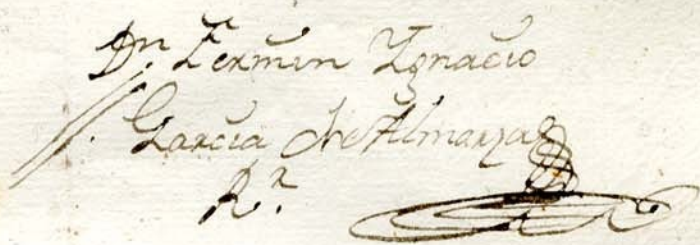 Dn. Fermin Ygnacio
Garcia de Almarza
Rr.